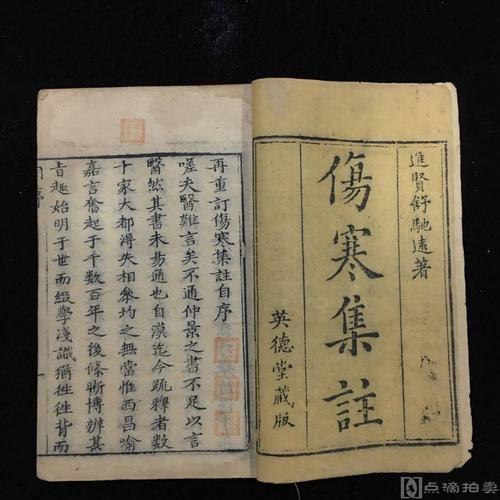 進賢舒馳遠著
傷寒集註
英德堂藏版
再重訂傷寒集註自序
嗟夫醫難言矣不通仲景之書不足以言
醫然其書未易通也自漢迄今疏釋者數
十家大都得失相參均之無當惟西昌喻
嘉言奮起于千數百年之後條晰博辨其
旨趣始明于世而綴學淺識猶徃徃背而
自序
一
点滴拍卖